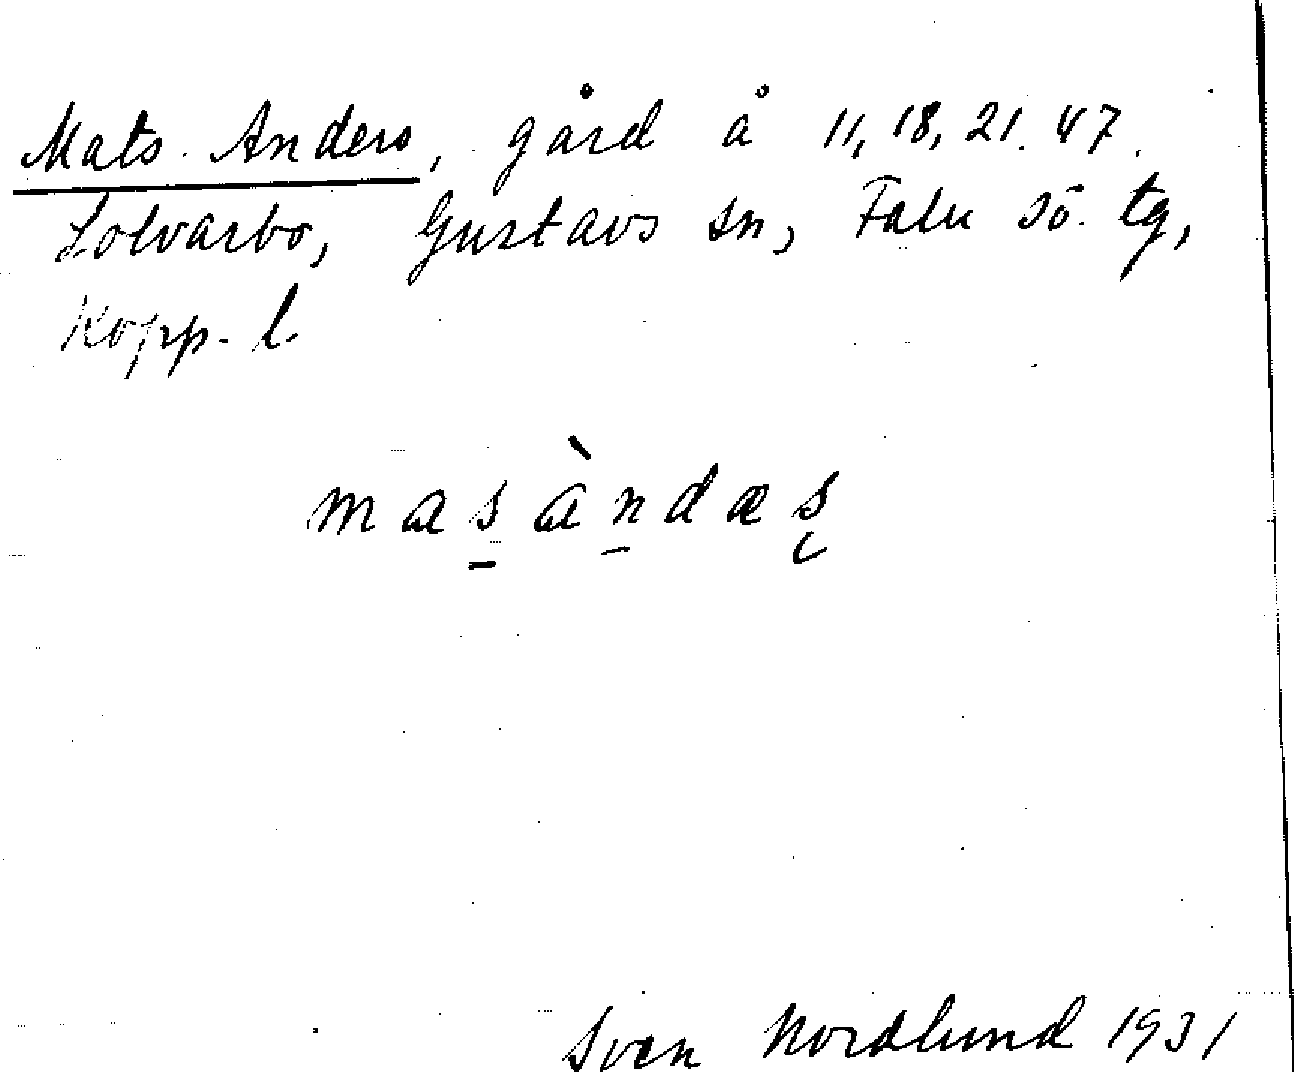 Mats Anders, gård å 11, 18, 21. 47.
Solvarbo, Gustavs sn, Falu sö. tg,
Kopp. l.
masàndæs
Sven Nordlund 1931